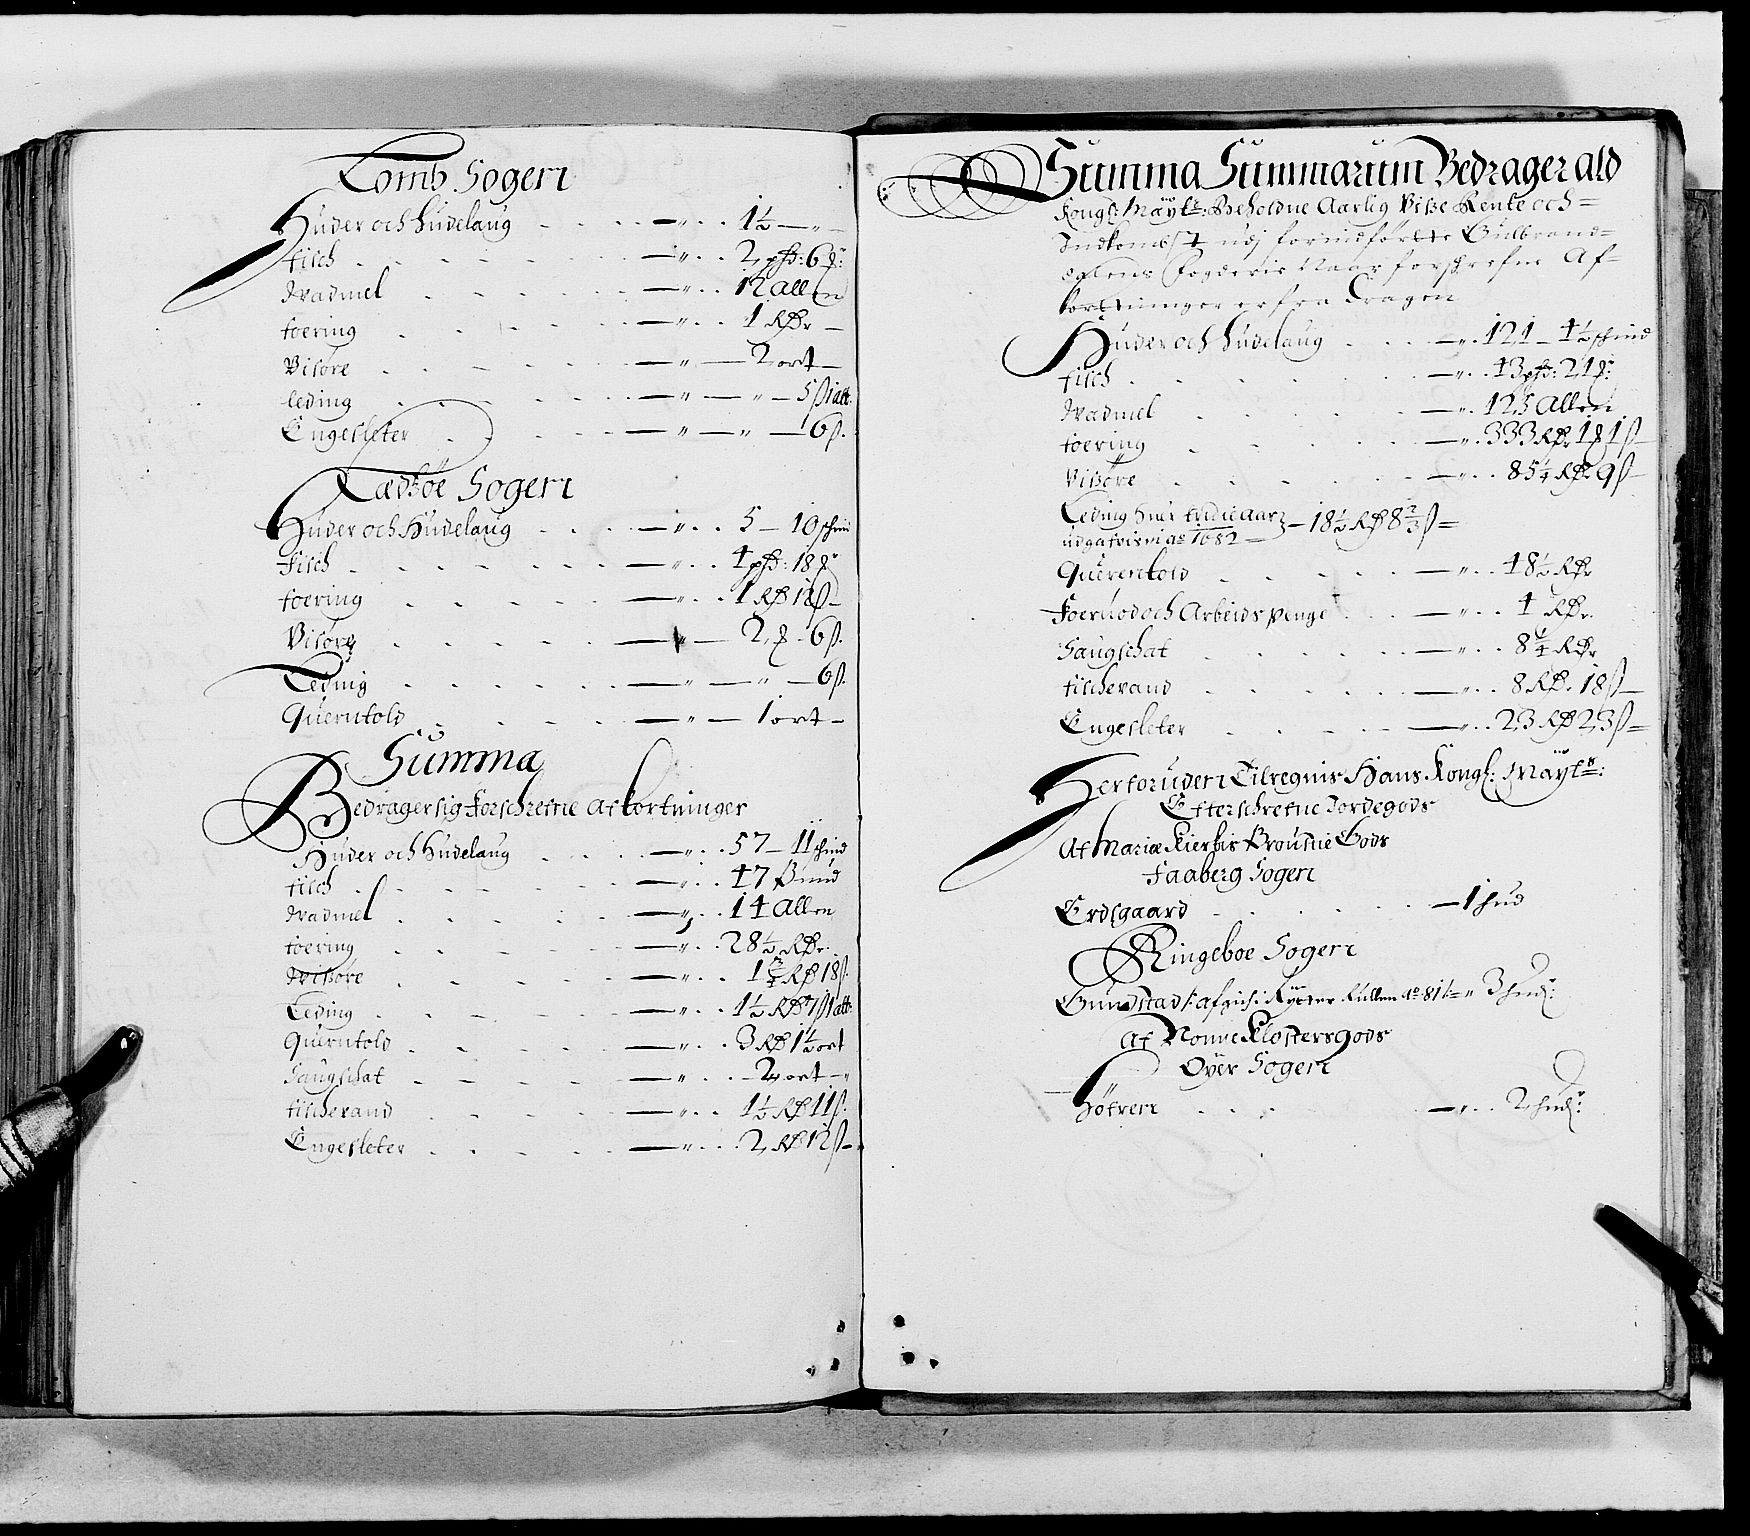 Lomb Sogen
Huder och Hudelaug - - - - „ - - 1½ - „ -
fisch - - - - „ - - 2 pfd: 6 
Wadmel - - - - „ - - 12 Allen
foering - - - - „ - - 1 Rdr -
Visöre - - - - „ - 2 ort -
leding - - - - „ - „ - 5 ß 1 alb:
Engesleter - - - - „ - „ - 6 ß.
Sogen
Huder och Hudelaug - - - - „ - - 5 - 10 schind
Fisch - - - - „ - - 4 pfd: 18
foering - - - - „ - - 1 Rd 18 ß -
Visöre - - - - „ - 2 - 6 ß.
Leding - - - - „ - „ - 6 ß.
Querntold - - - - „ - 1 ort -
Summa
Bedrager sig Forschrefne Afkortninger
Huder och Hudelaug - - - - „ - - 57 - 11 schind
fisch - - - - „ - - 47 Pund
Wadmel - - - - „ - - 14 Allen
foering - - - - „ - - 28½ Rdr.
Wisöre - - - - „ - - 1¾ Rd 18 ß.
Leding - - - - „ - - 1½ Rd 7 ß 1 alb:
Querntold - - - - „ - - 3 Rd 1½ ort
Saugschat - - - - „ - - 2 ort - „
fischevand - - - - „ - - 1½ Rd 11 ß.
Engesleter - - - - „ - - 2 Rd 12 ß -
Summa Summarum Bedrager ald
Kongl: Mayts: Beholdne Aarlig Visse Rente och =
Indkombst udj forindförte Gulbrand=
dalens Fogderie Naar forschrefne Af=
kortninger er fra dragen
Huder och Hudelaug - - - „ - 121 - 4½ schind
fisch - - - - „ - - 43 pfd: 21
Wadmel - - - - „ - 125 Allen
foering - - - - „ - 333 Rdr 1 1 ß -
Visöre - - - - „ - - 85¼ Rdr 9 ß -
Leding huer tredie aar
udgafvis in ao 1682 - - 18½ Rd 8⅔ ß =
Querentold - - - - „ - - 48½ Rdr
Foernod och Arbeids penge - - „ - - 4 Rdr.
Saugschat - - - - „ - - 8¼ Rdr
fischevand - - - - „ - - 8 Rd. 18 ß -
Engesleter - - - - „ - - 23 Rd 23 ß =
Herforuden Tilregnis Hans Kongl: Mayts:
Efterschrefne Jordegods
Af Mariæ Kierkis Proustie Gods
Faaberg Sogen
Erdsgaard - - - - 1 hud
Ringeboe Sogen
Gundstad /: afgich i Rytter Rullen ao 81 /: = „ 3 huder:
Af Nonne Klosters gods
Öyer Sogen
- - - - „ - - 2 huder: